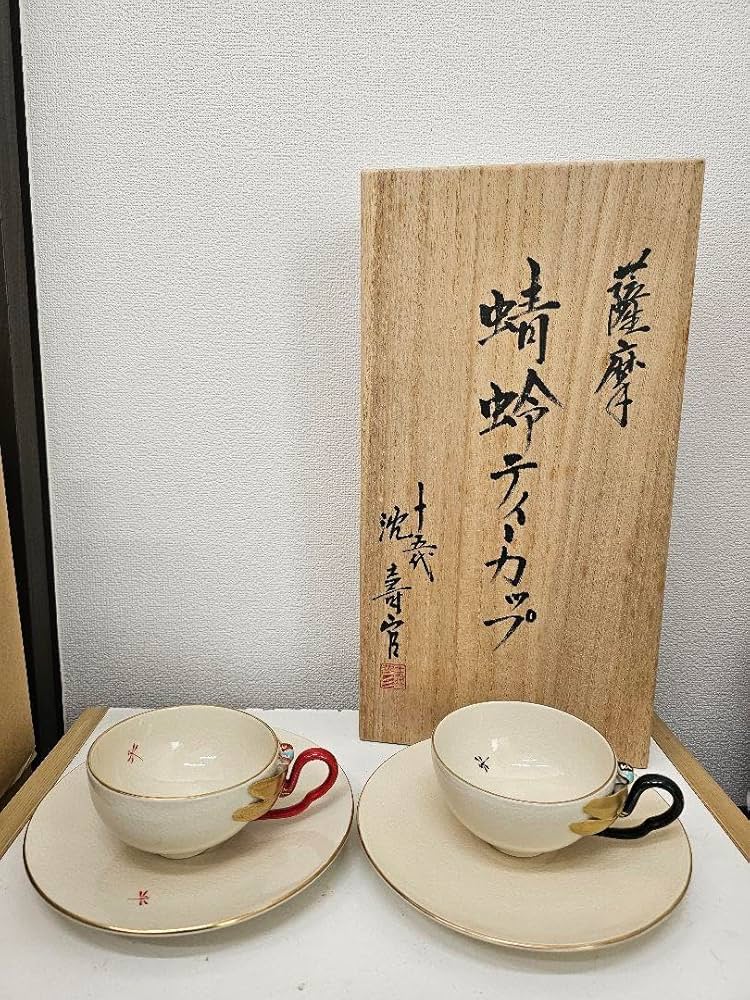 薩摩
蜻蛉ティーカップ
十五代
沈壽官